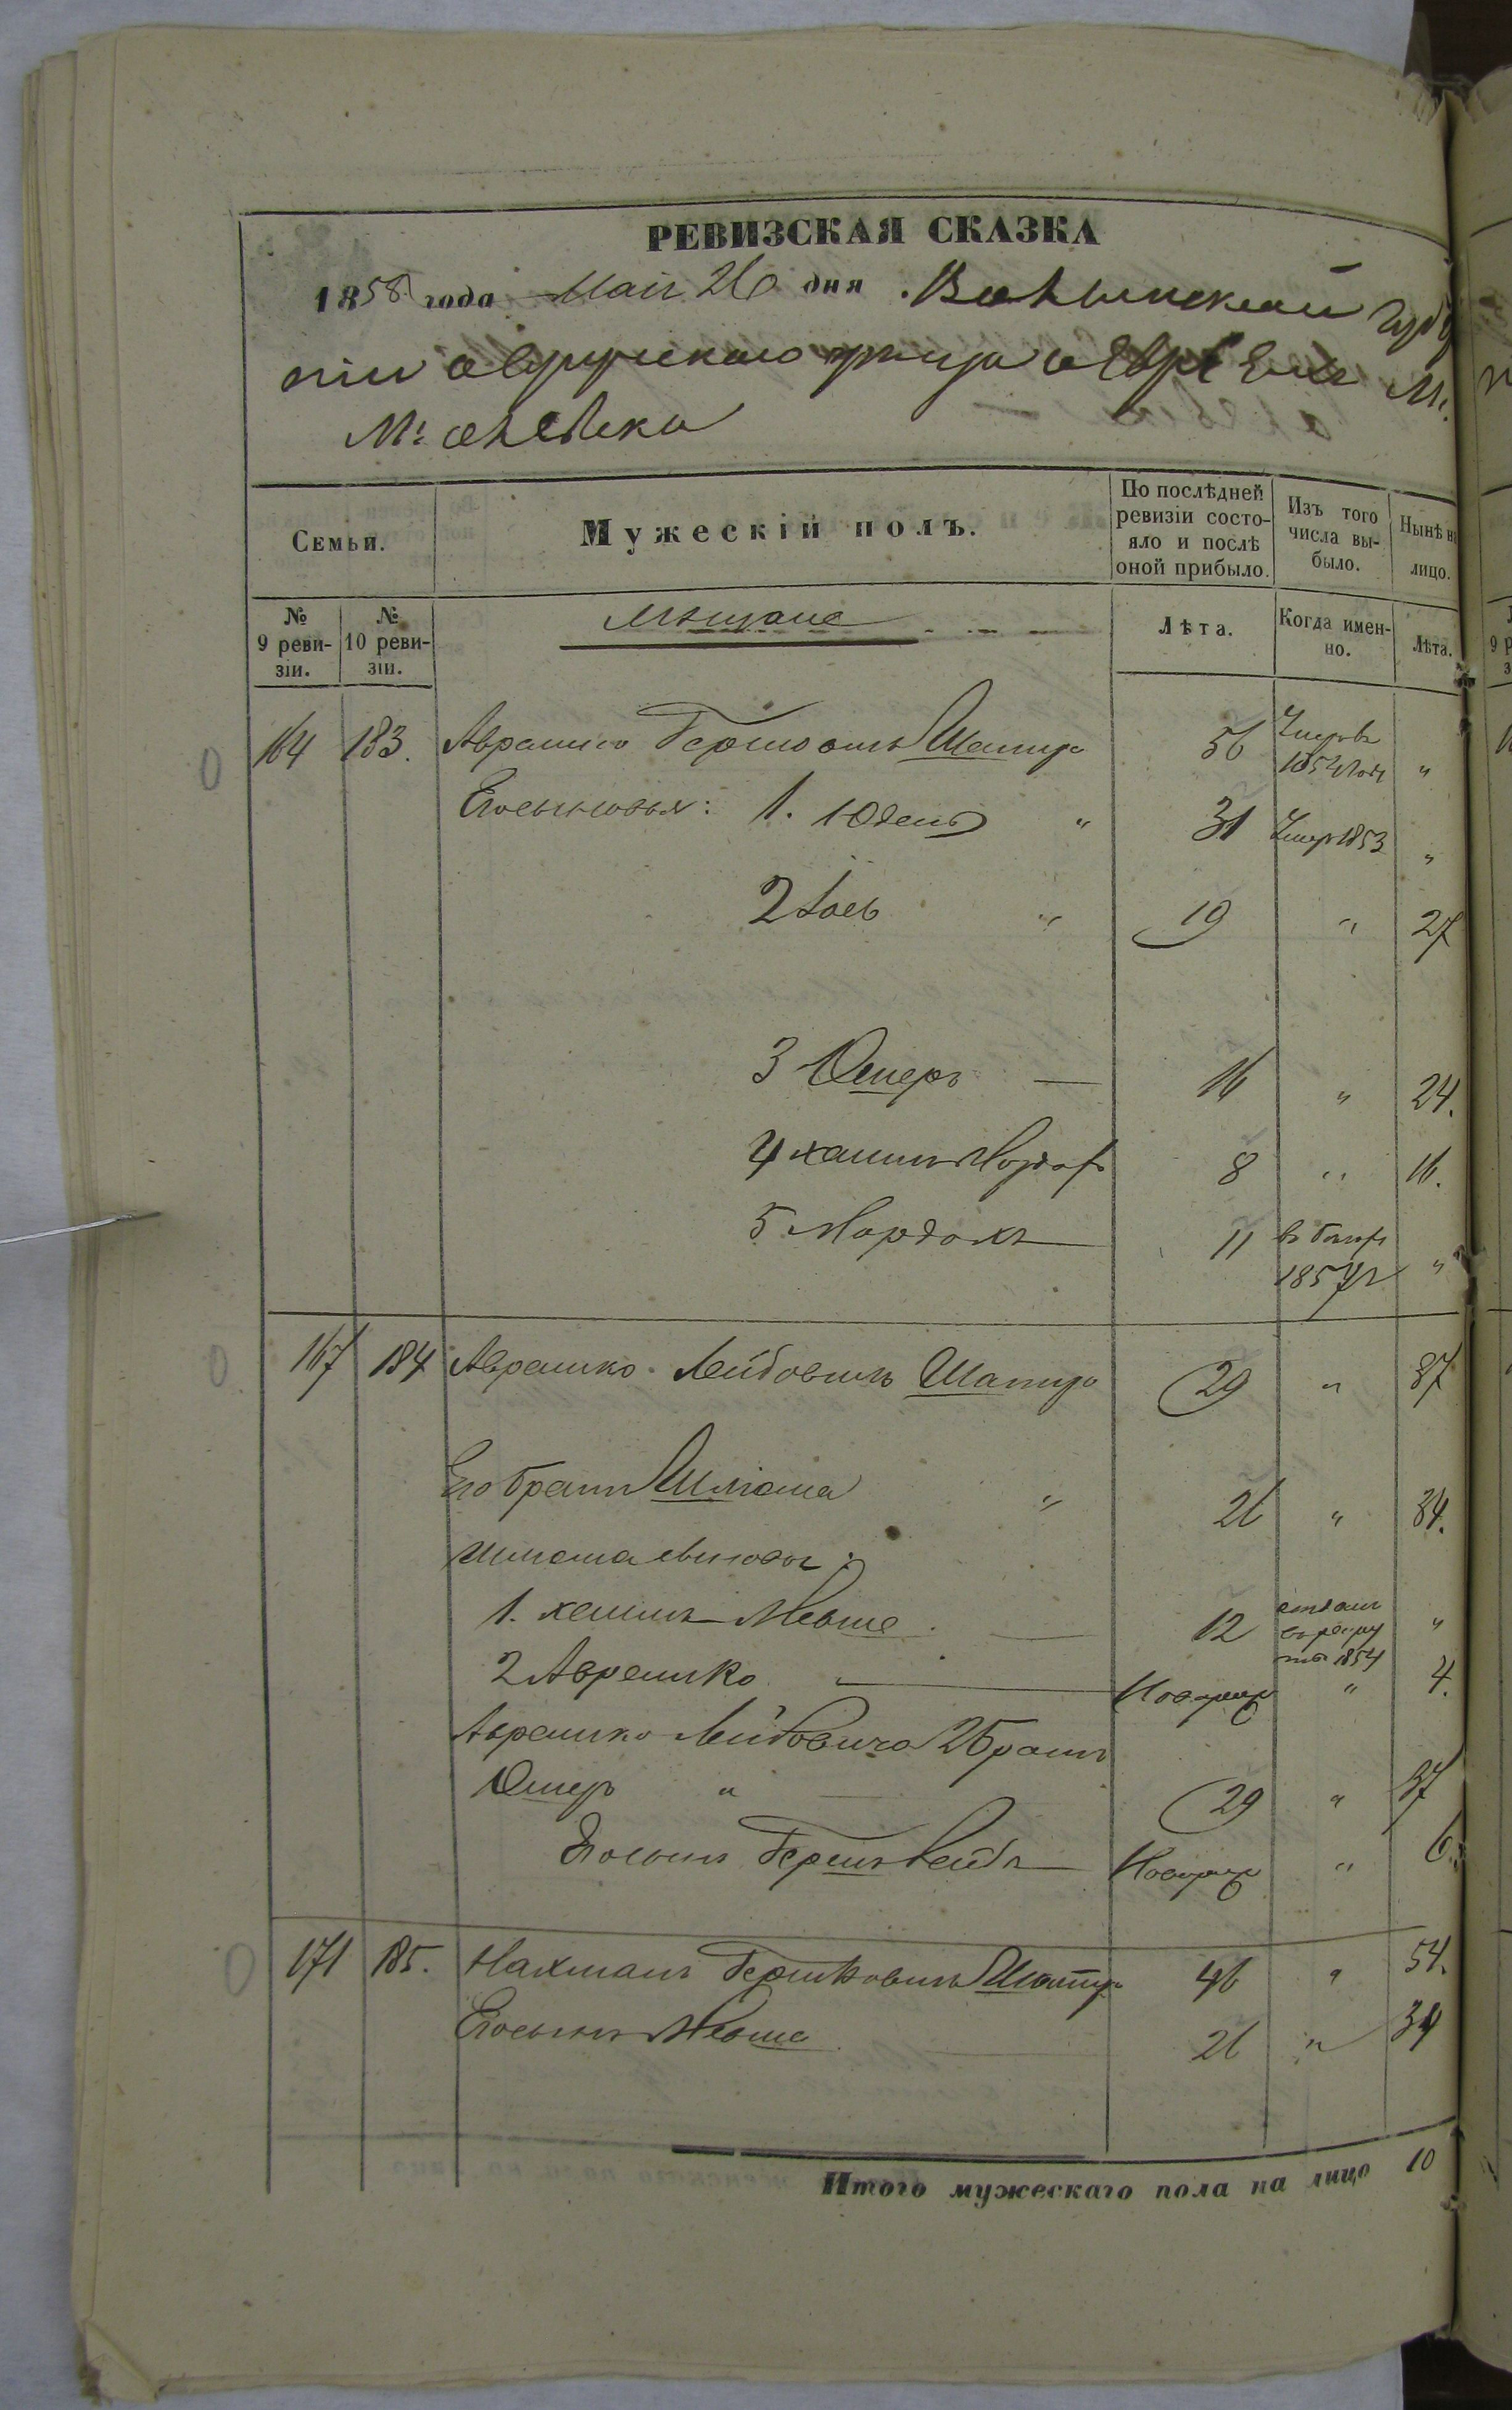 РЕВИЗСКАЯ СКАЗКА
1858 года Мая 26 дня Волынской губер
ніи овручскаго уѣзда о Евреяхъ М.
М: олевска
Семьи.
Мужескій полъ.
По послѣдней ревизіи состо-
яло и послѣ оной прибыло.
Изъ того числа вы-
было.
Нынѣ на лицо.
№ 9 реви-
зіи.
№ 10 реви-
зіи.
мѣщане
Лѣта.
Когда имен-
но.
Лѣта.
164 183. Аврамко Гершовичъ Шапиро 56 Умеръ въ 1854 годѣ "
Его сыновья: 1. Юдель " 31 Умер 1853 "
2 Іось " 19 " 27
3 Ошеръ — 16 " 24.
4 хаимъ 8 " 16.
5 Мордохъ 11 въ бегах 1857 г "
167 184 Аврамко Лейбовичъ Шапиро 29 " 37
Его братъ Шліома " 26 " 34.
Шліома сыновья:
1. хаимъ Мевша — 12 отданъ въ рекру ты 1854 "
2 Аврамко — Новорож " 4.
Аврамко Лейбовича 2 братъ
Ошеръ " — 29 " 37
Его сынъ Гершъ Лейбъ — Новорож " 6.
171 185. Нахманъ Гершковичъ Шапиро 46 " 54.
Его сынъ Мевша 26 " 34
Итого мужескаго пола на лицо 10